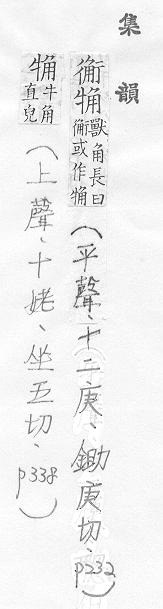 集韻
衡𧤭獸角長曰衡或作𧤭(平聲、十二庚、鋤庚切、p232)
牛角直皃(上聲、十姥、坐五切、p338)